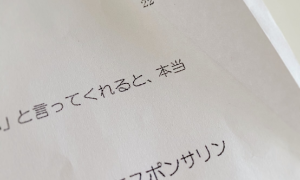 22
」と言ってくれると、本当
スポンサリン